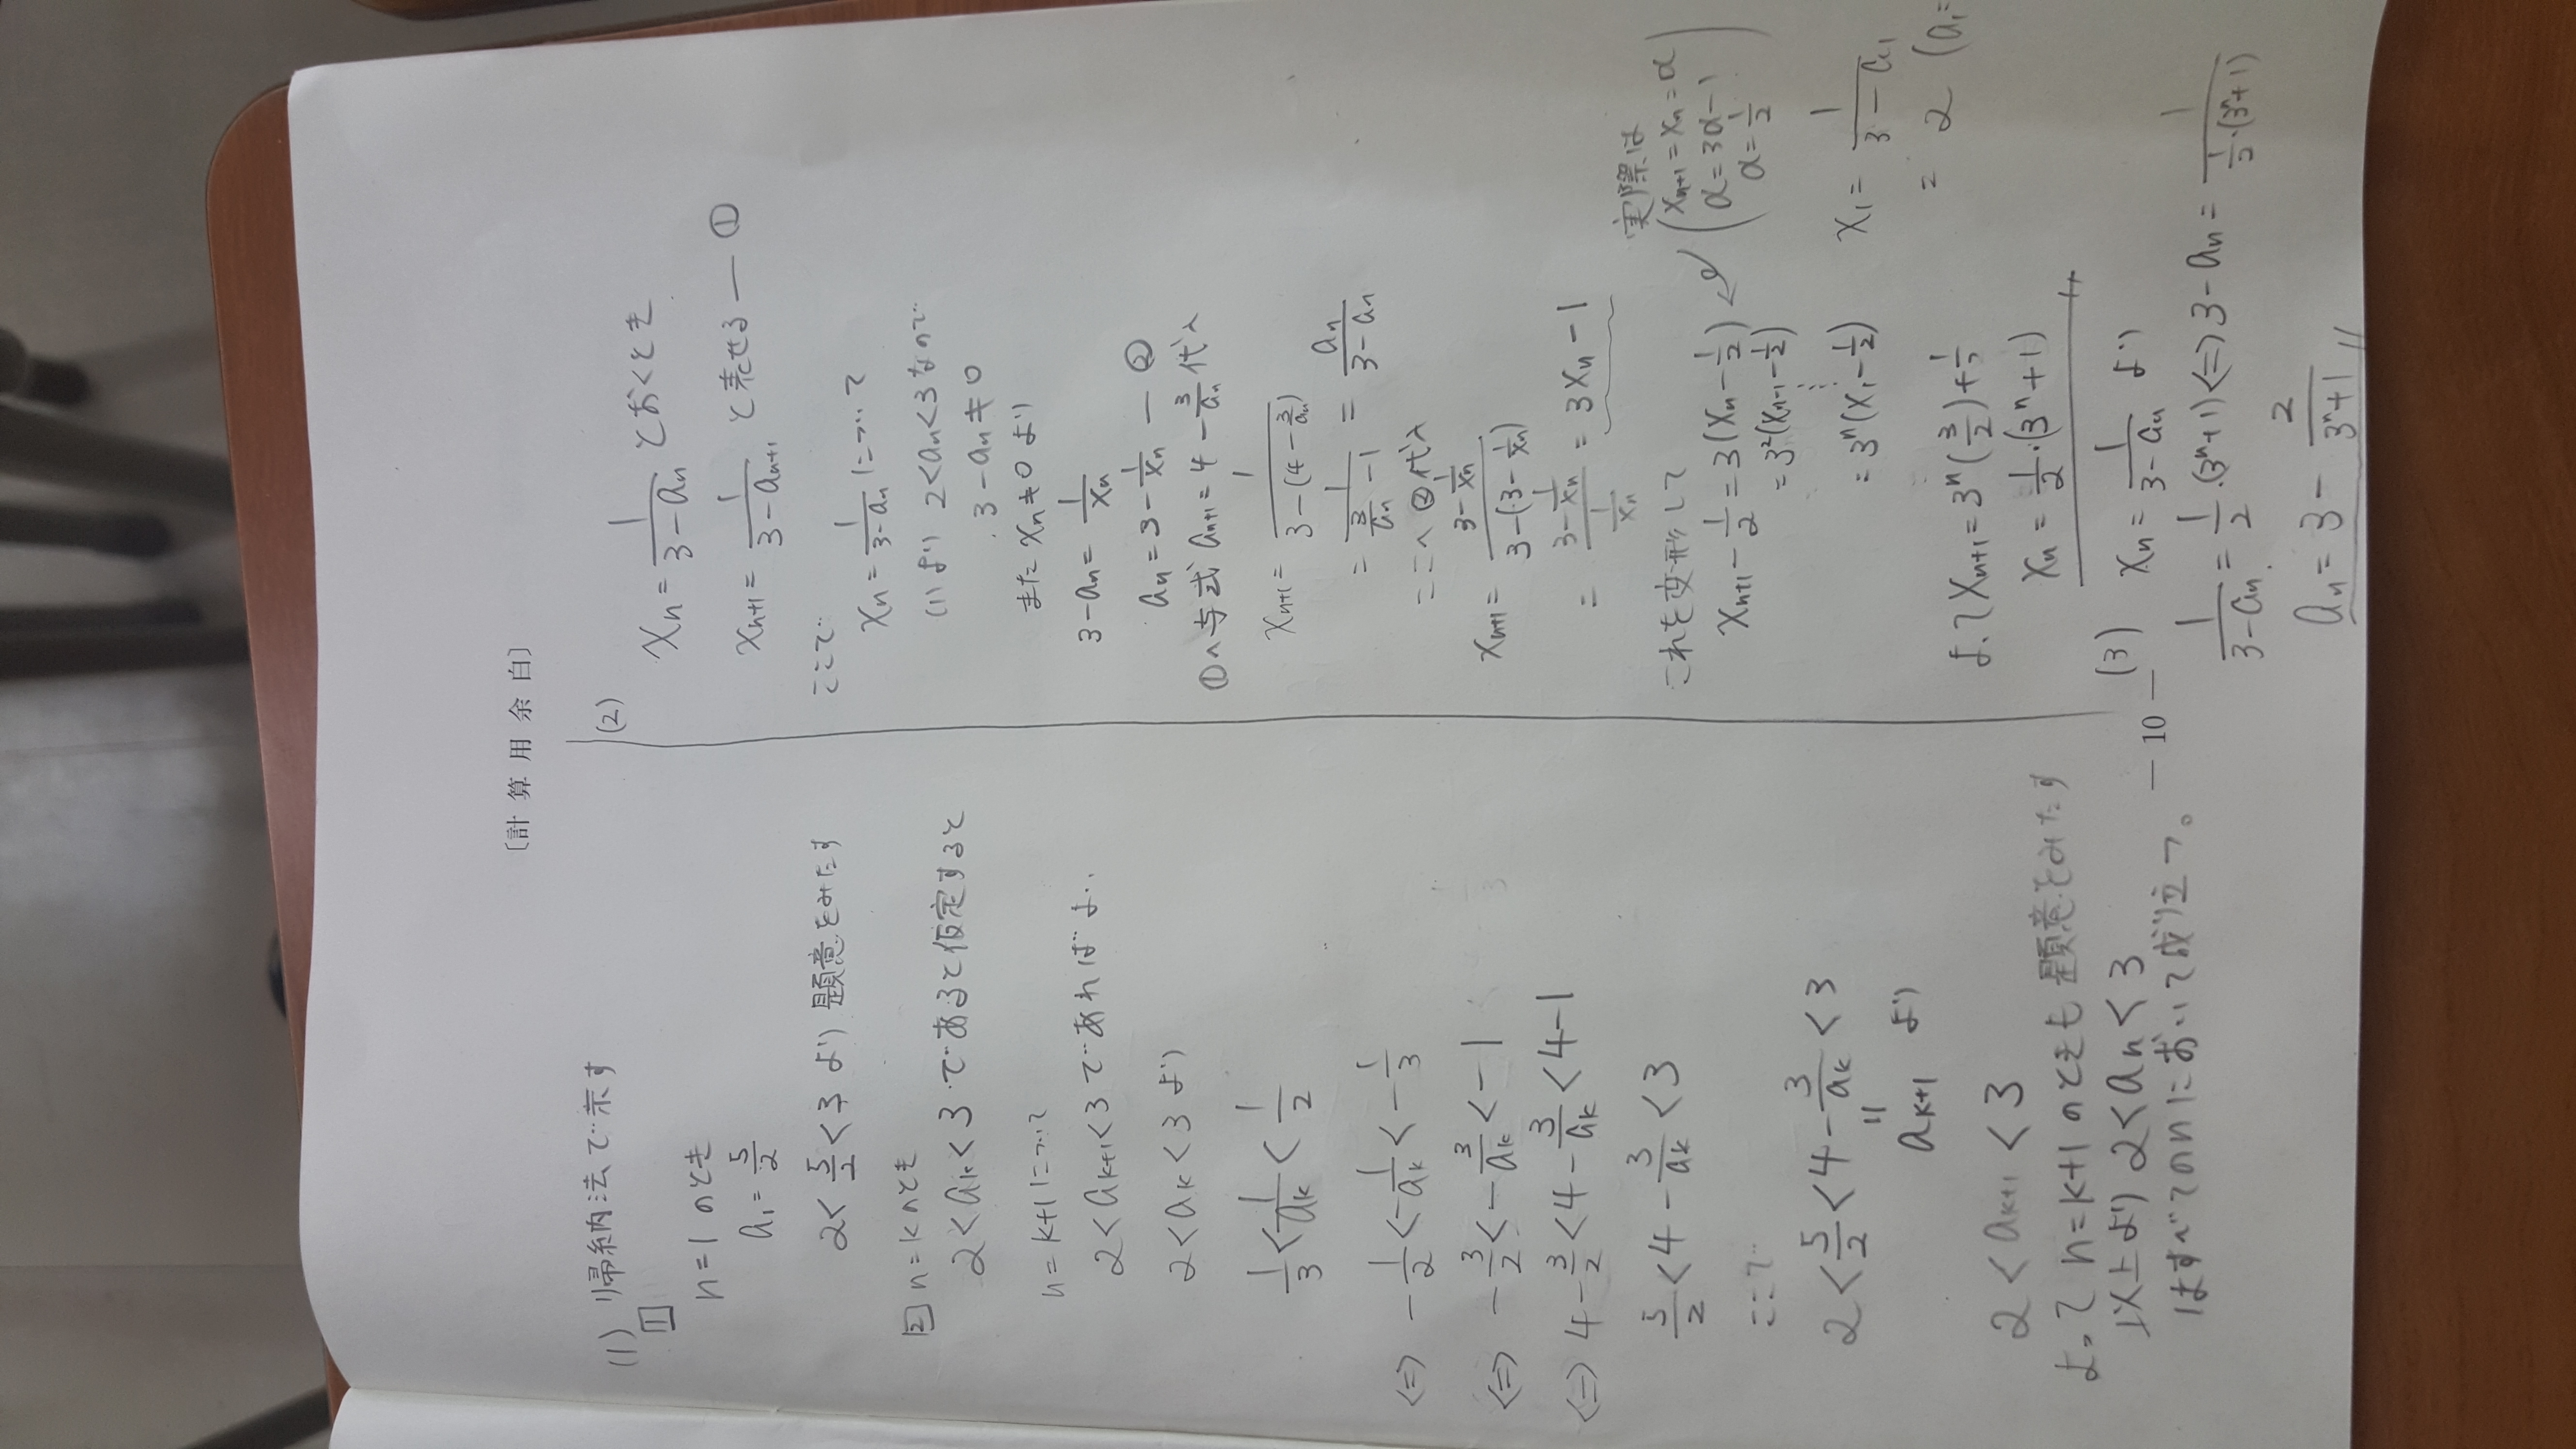 〔計算用余白〕
(1) 帰納法で示す
[1]
n=1のとき
a₁=5/2
2<5/2<3より題意をみたす
[2] n=kのとき
2<aₖ<3であると仮定すると
n=k+1について
2<aₖ₊₁<3であればよい
2<aₖ<3より
1/3<1/aₖ<1/2
⇔ -1/2<-1/aₖ<-1/3
⇔ -3/2<-3/aₖ<-1
⇔ 4-3/2<4-3/aₖ<4-1
5/2<4-3/aₖ<3
ここで
2<5/2<4-3/aₖ<3
=
aₖ₊₁ より
2<aₖ₊₁<3
よってn=k+1のときも題意をみたす
以上より2<aₙ<3
はすべてのnにおいて成り立つ。
(2)
xₙ=1/(3-aₙ) とおくとき
xₙ₊₁=1/(3-aₙ₊₁) と表せる ― ①
ここで
xₙ=1/(3-aₙ) について
(1)より 2<aₙ<3なので
3-aₙ≠0
また xₙ≠0より
3-aₙ=1/xₙ
aₙ=3-1/xₙ ― ②
①へ与式 aₙ₊₁=4-3/aₙ 代入
xₙ₊₁=1/(3-(4-3/aₙ))
=1/(3/aₙ-1)=aₙ/(3-aₙ)
ここへ②代入
xₙ₊₁=(3-1/xₙ)/(3-(3-1/xₙ))
=(3-1/xₙ)/(1/xₙ)=3xₙ-1
これを変形して
xₙ₊₁-1/2=3(xₙ-1/2)
実際は
(xₙ₊₁=xₙ=α
α=3α-1
α=1/2)
=3²(xₙ₋₁-1/2)
⋮
=3ⁿ(x₁-1/2)
x₁=1/(3-a₁)
=2 (a₁=
よってxₙ₊₁=3ⁿ(3/2)+1/2
xₙ=1/2・(3ⁿ+1)
(3) xₙ=1/(3-aₙ) より
1/(3-aₙ)=1/2・(3ⁿ+1)⇔3-aₙ=1/(1/2・(3ⁿ+1))
aₙ=3-2/(3ⁿ+1)
― 10 ―